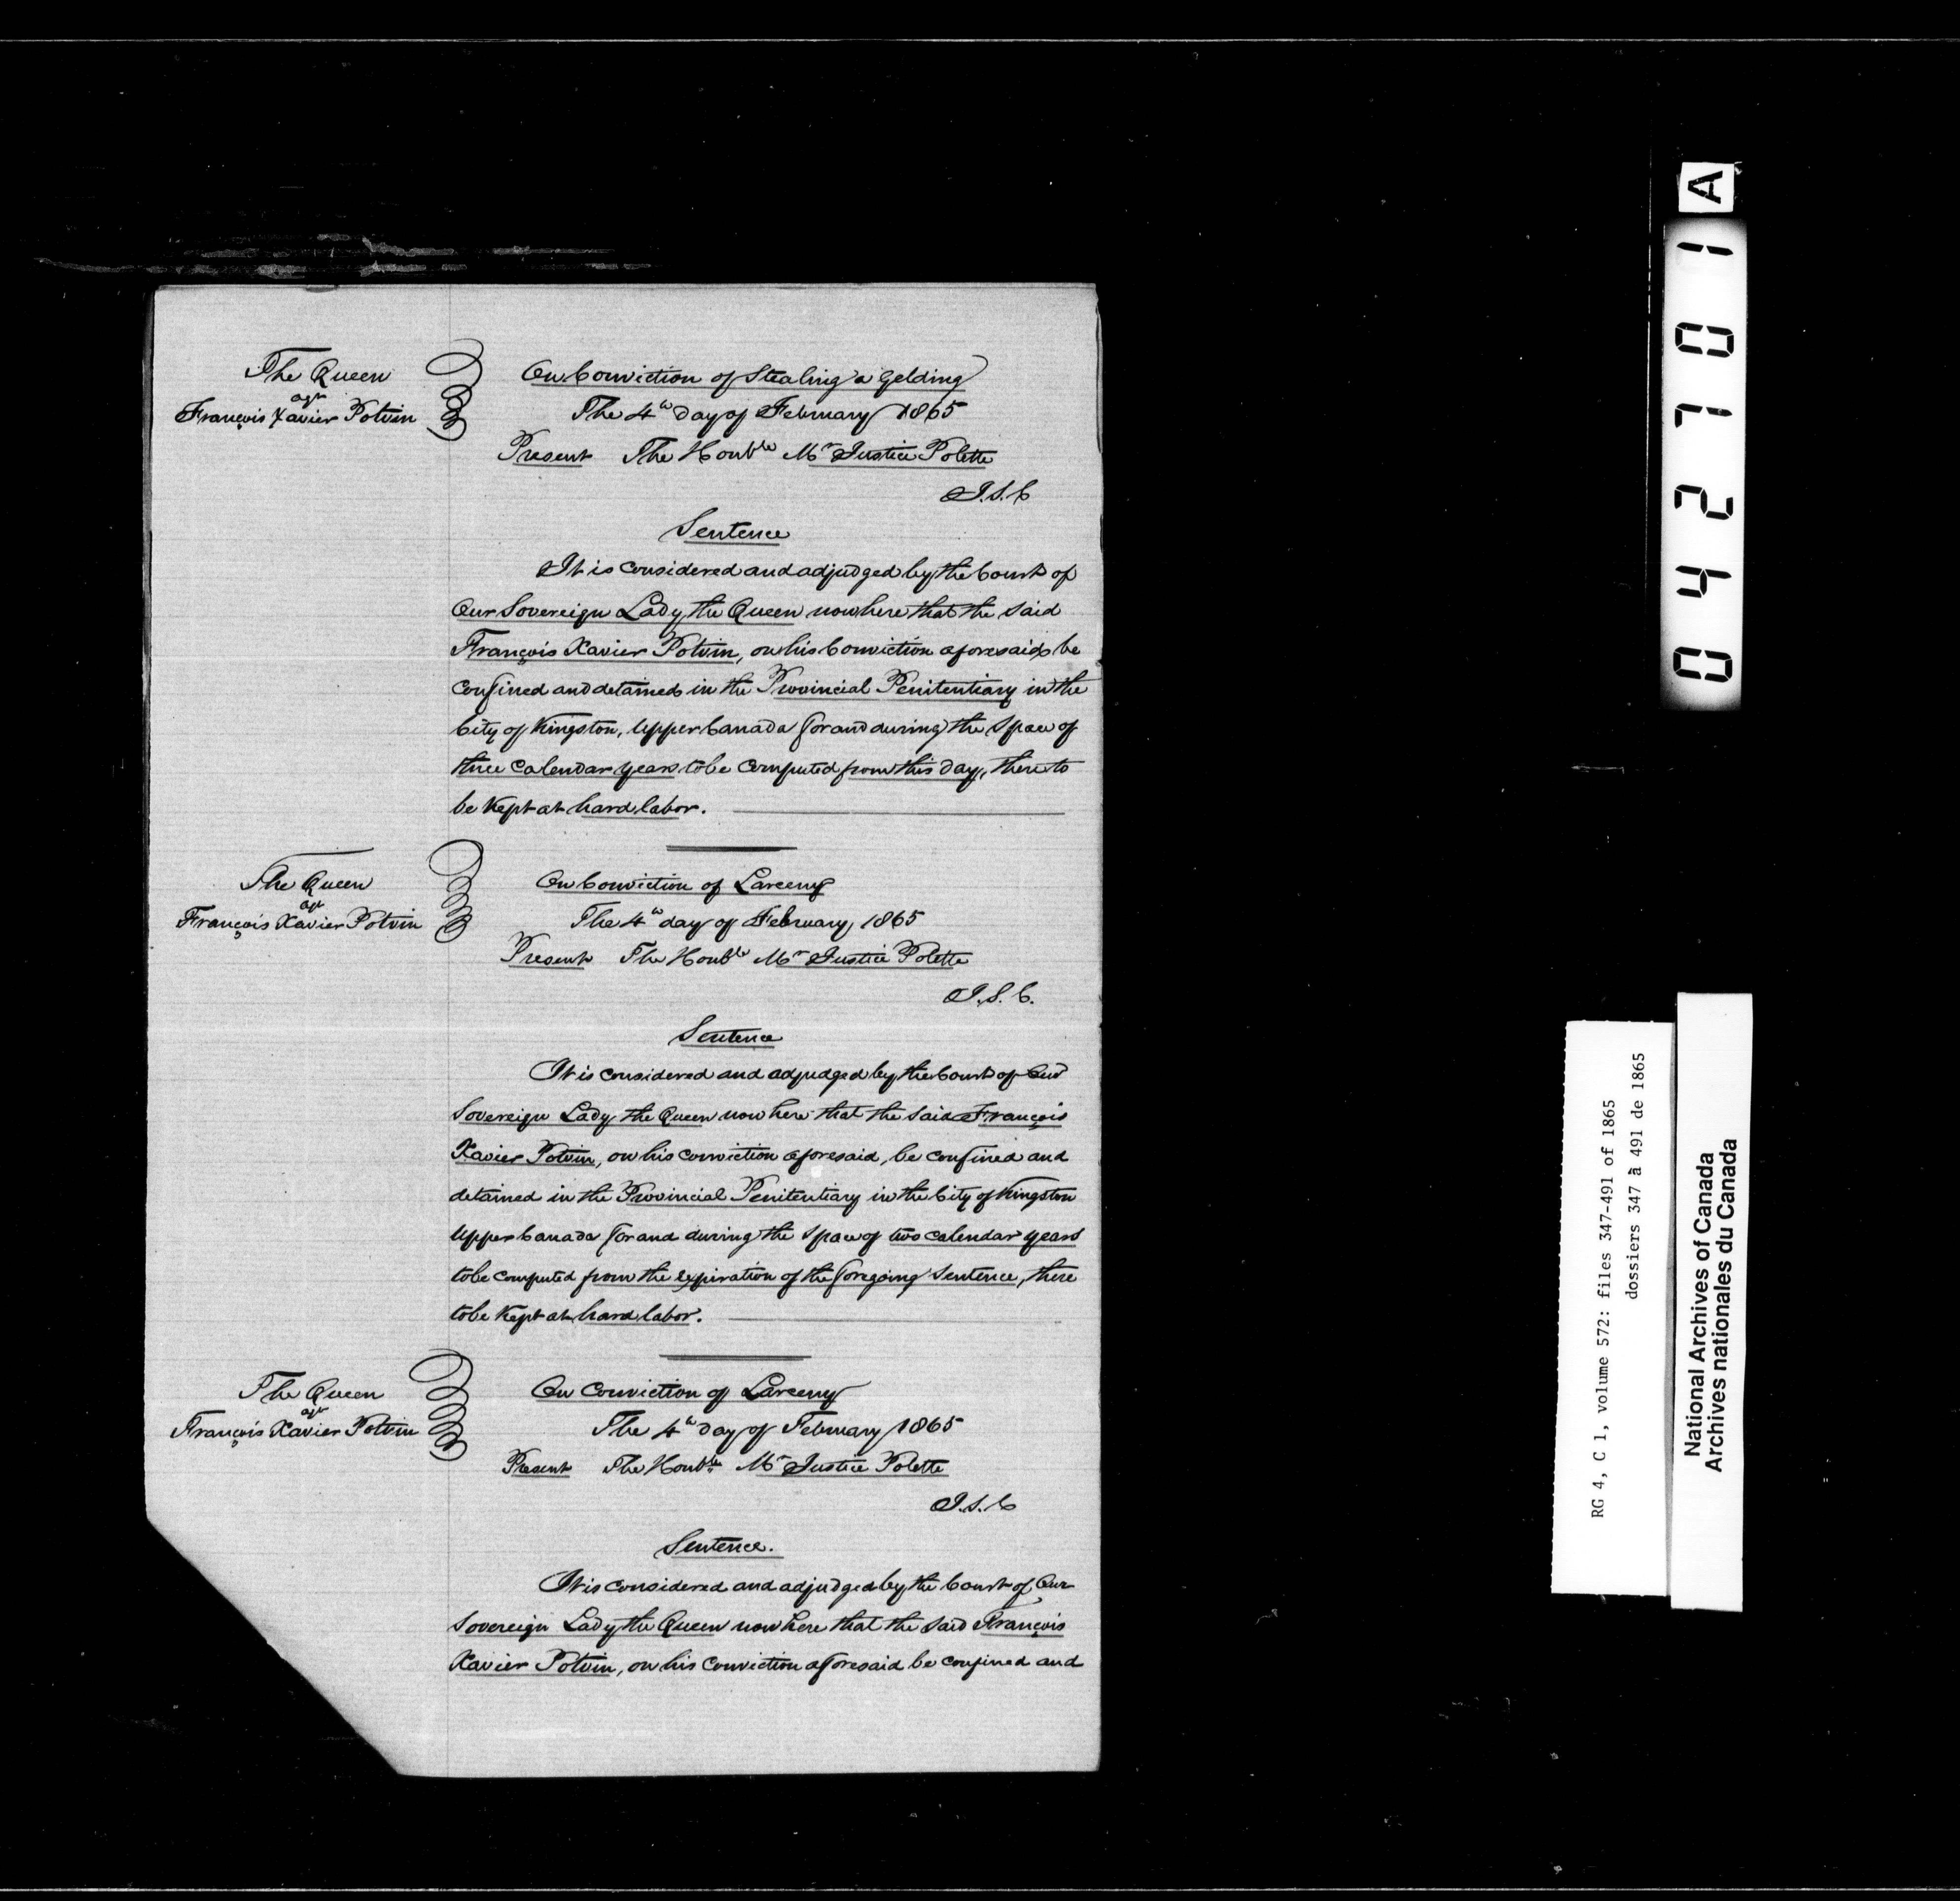 The Queen
agt
François Xavier Potvin
On Conviction of Stealing a Gelding
The 4th day of February 1865
Present The Honble Mr Justice Polette
J.S.C
Sentence
It is considered and adjudged by the Court of
Our Sovereign Lady the Queen now here that the said
François Xavier Potvin, on his Conviction aforesaid, be
confined and detained in the Provincial Penitentiary in the
City of Kingston, Upper Canada for and during the space of
three Calendar years to be computed from this day, there to
be kept at hard labor.
The Queen
agt
François Xavier Potvin
On Conviction of Larceny
The 4th day of February, 1865
Present The Honble Mr Justice Polette
J.S.C.
Sentence
It is considered and adjudged by the Court of Our
Sovereign Lady the Queen now here that the said François
Xavier Potvin, on his conviction aforesaid, be confined and
detained in the Provincial Penitentiary in the City of Kingston
Upper Canada for and during the space of two calendar years
to be computed from the expiration of the foregoing Sentence, there
to be kept at hard labor.
The Queen
agt
François Xavier Potvin
On Conviction of Larceny
The 4th day of February 1865
Present The Honble Mr Justice Polette
J.S.C
Sentence.
It is considered and adjudged by the Court of Our
Sovereign Lady the Queen now here that the said François
Xavier Potvin, on his Conviction aforesaid be confined and
042701 A
RG 4, C 1, volume 572: files 347-491 of 1865
dossiers 347 à 491 de 1865
National Archives of Canada
Archives nationales du Canada